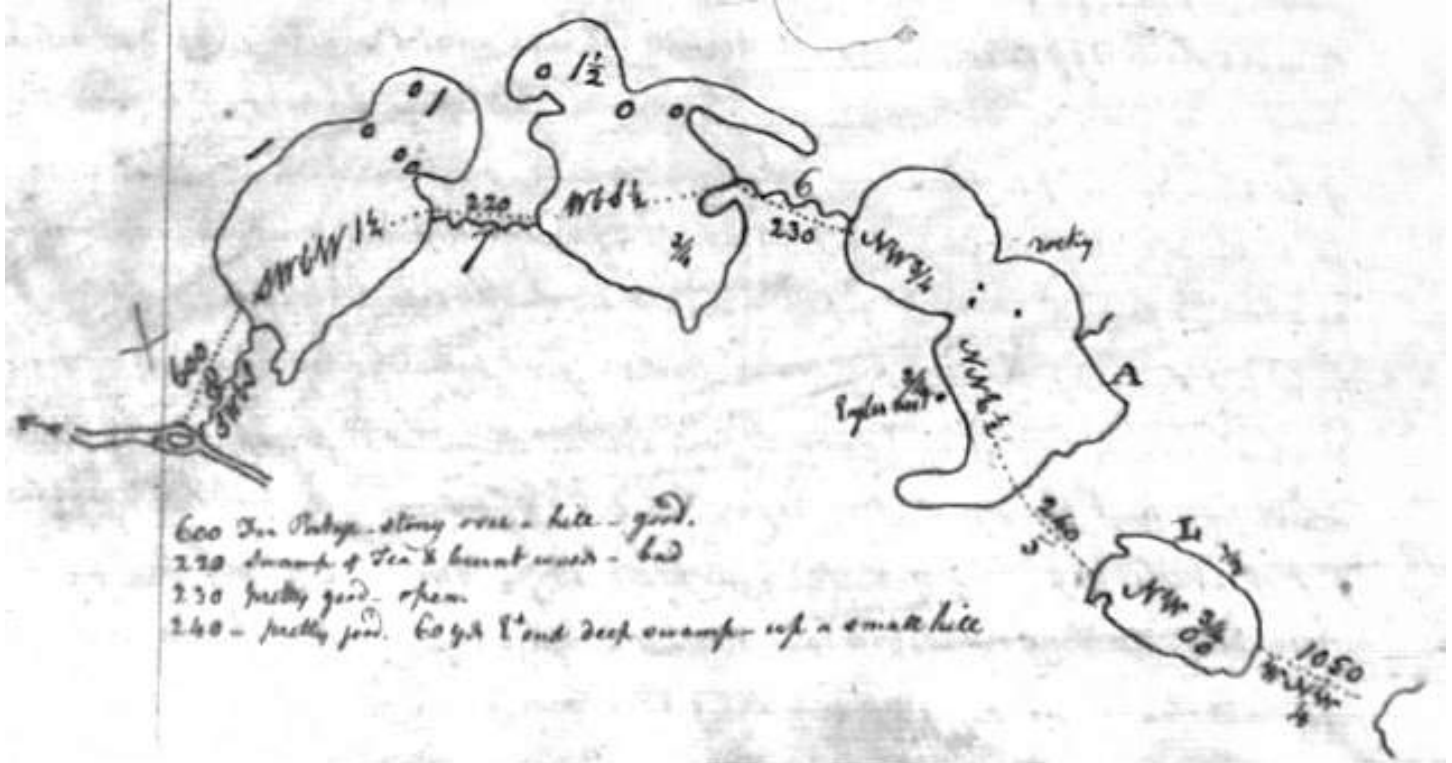 1
1 1/2
SWbW 1 1/4
220
WbS 1/2
3/4
6
230
NW 3/4
rocky
600
A
3/4
NNE 1/2
240
5
L
NW 3/4
1050
WNW
600 stony over a hill - good.
220 Swamp of Tea & burnt woods - bad
230 pretty good - open
240 - pretty good. 60 yds Et end deep swamp - up a small hill